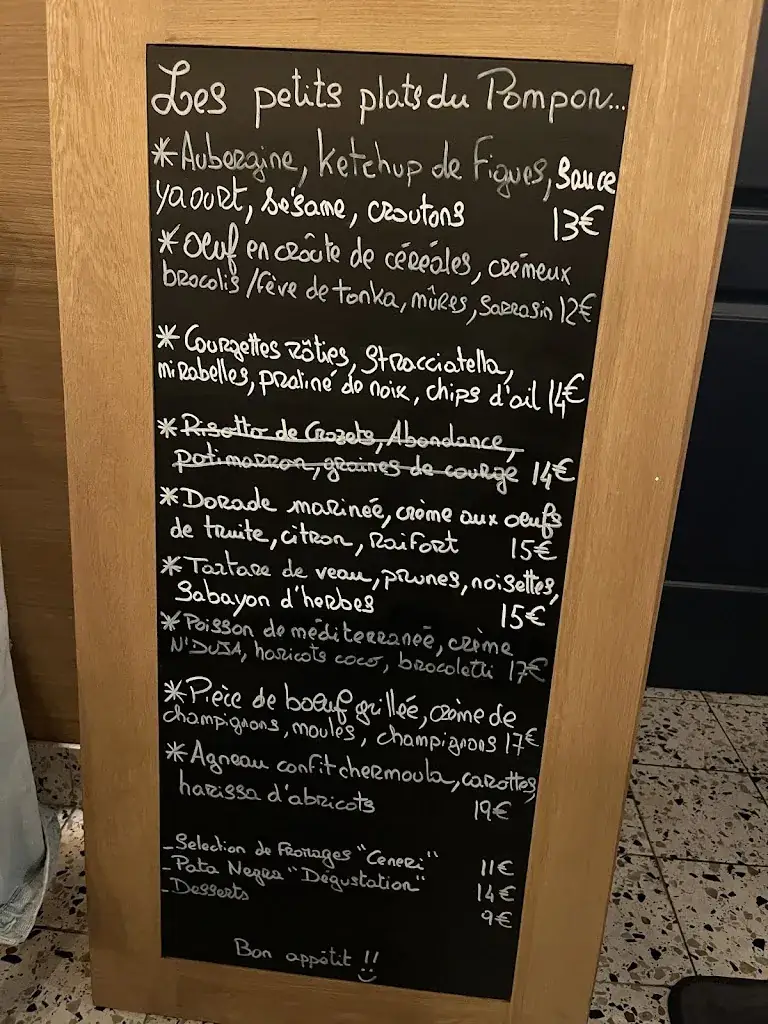 Les petits plats du Pompon...
*Aubergine, ketchup de figues, sauce
yaourt, sésame, croutons 13€
*Oeuf en croûte de céréales, crémeux
brocolis /fève de tonka, mûres, sarrasin 12€
*Courgettes rôties, Stracciatella,
mirabelles, praliné de noix, chips d'ail 14€
*Risotto de Crozets, Abondance,
potimarron, graines de courge 14€
*Dorade marinée, crème aux oeufs
de truite, citron, Raifort 15€
*Tartare de veau, prunes, noisettes,
Sabayon d'herbes 15€
*Poisson de méditerranée, crème
N'DUJA, haricots coco, brocoletti 17€
*Pièce de boeuf grillée, crème de
champignons, moules, champignons 17€
*Agneau confit chermoula, carottes,
harissa d'abricots 19€
-Selection de Fromages "Ceneri" 11€
-Pata Negra "Dégustation" 14€
-Desserts 9€
Bon appétit !!